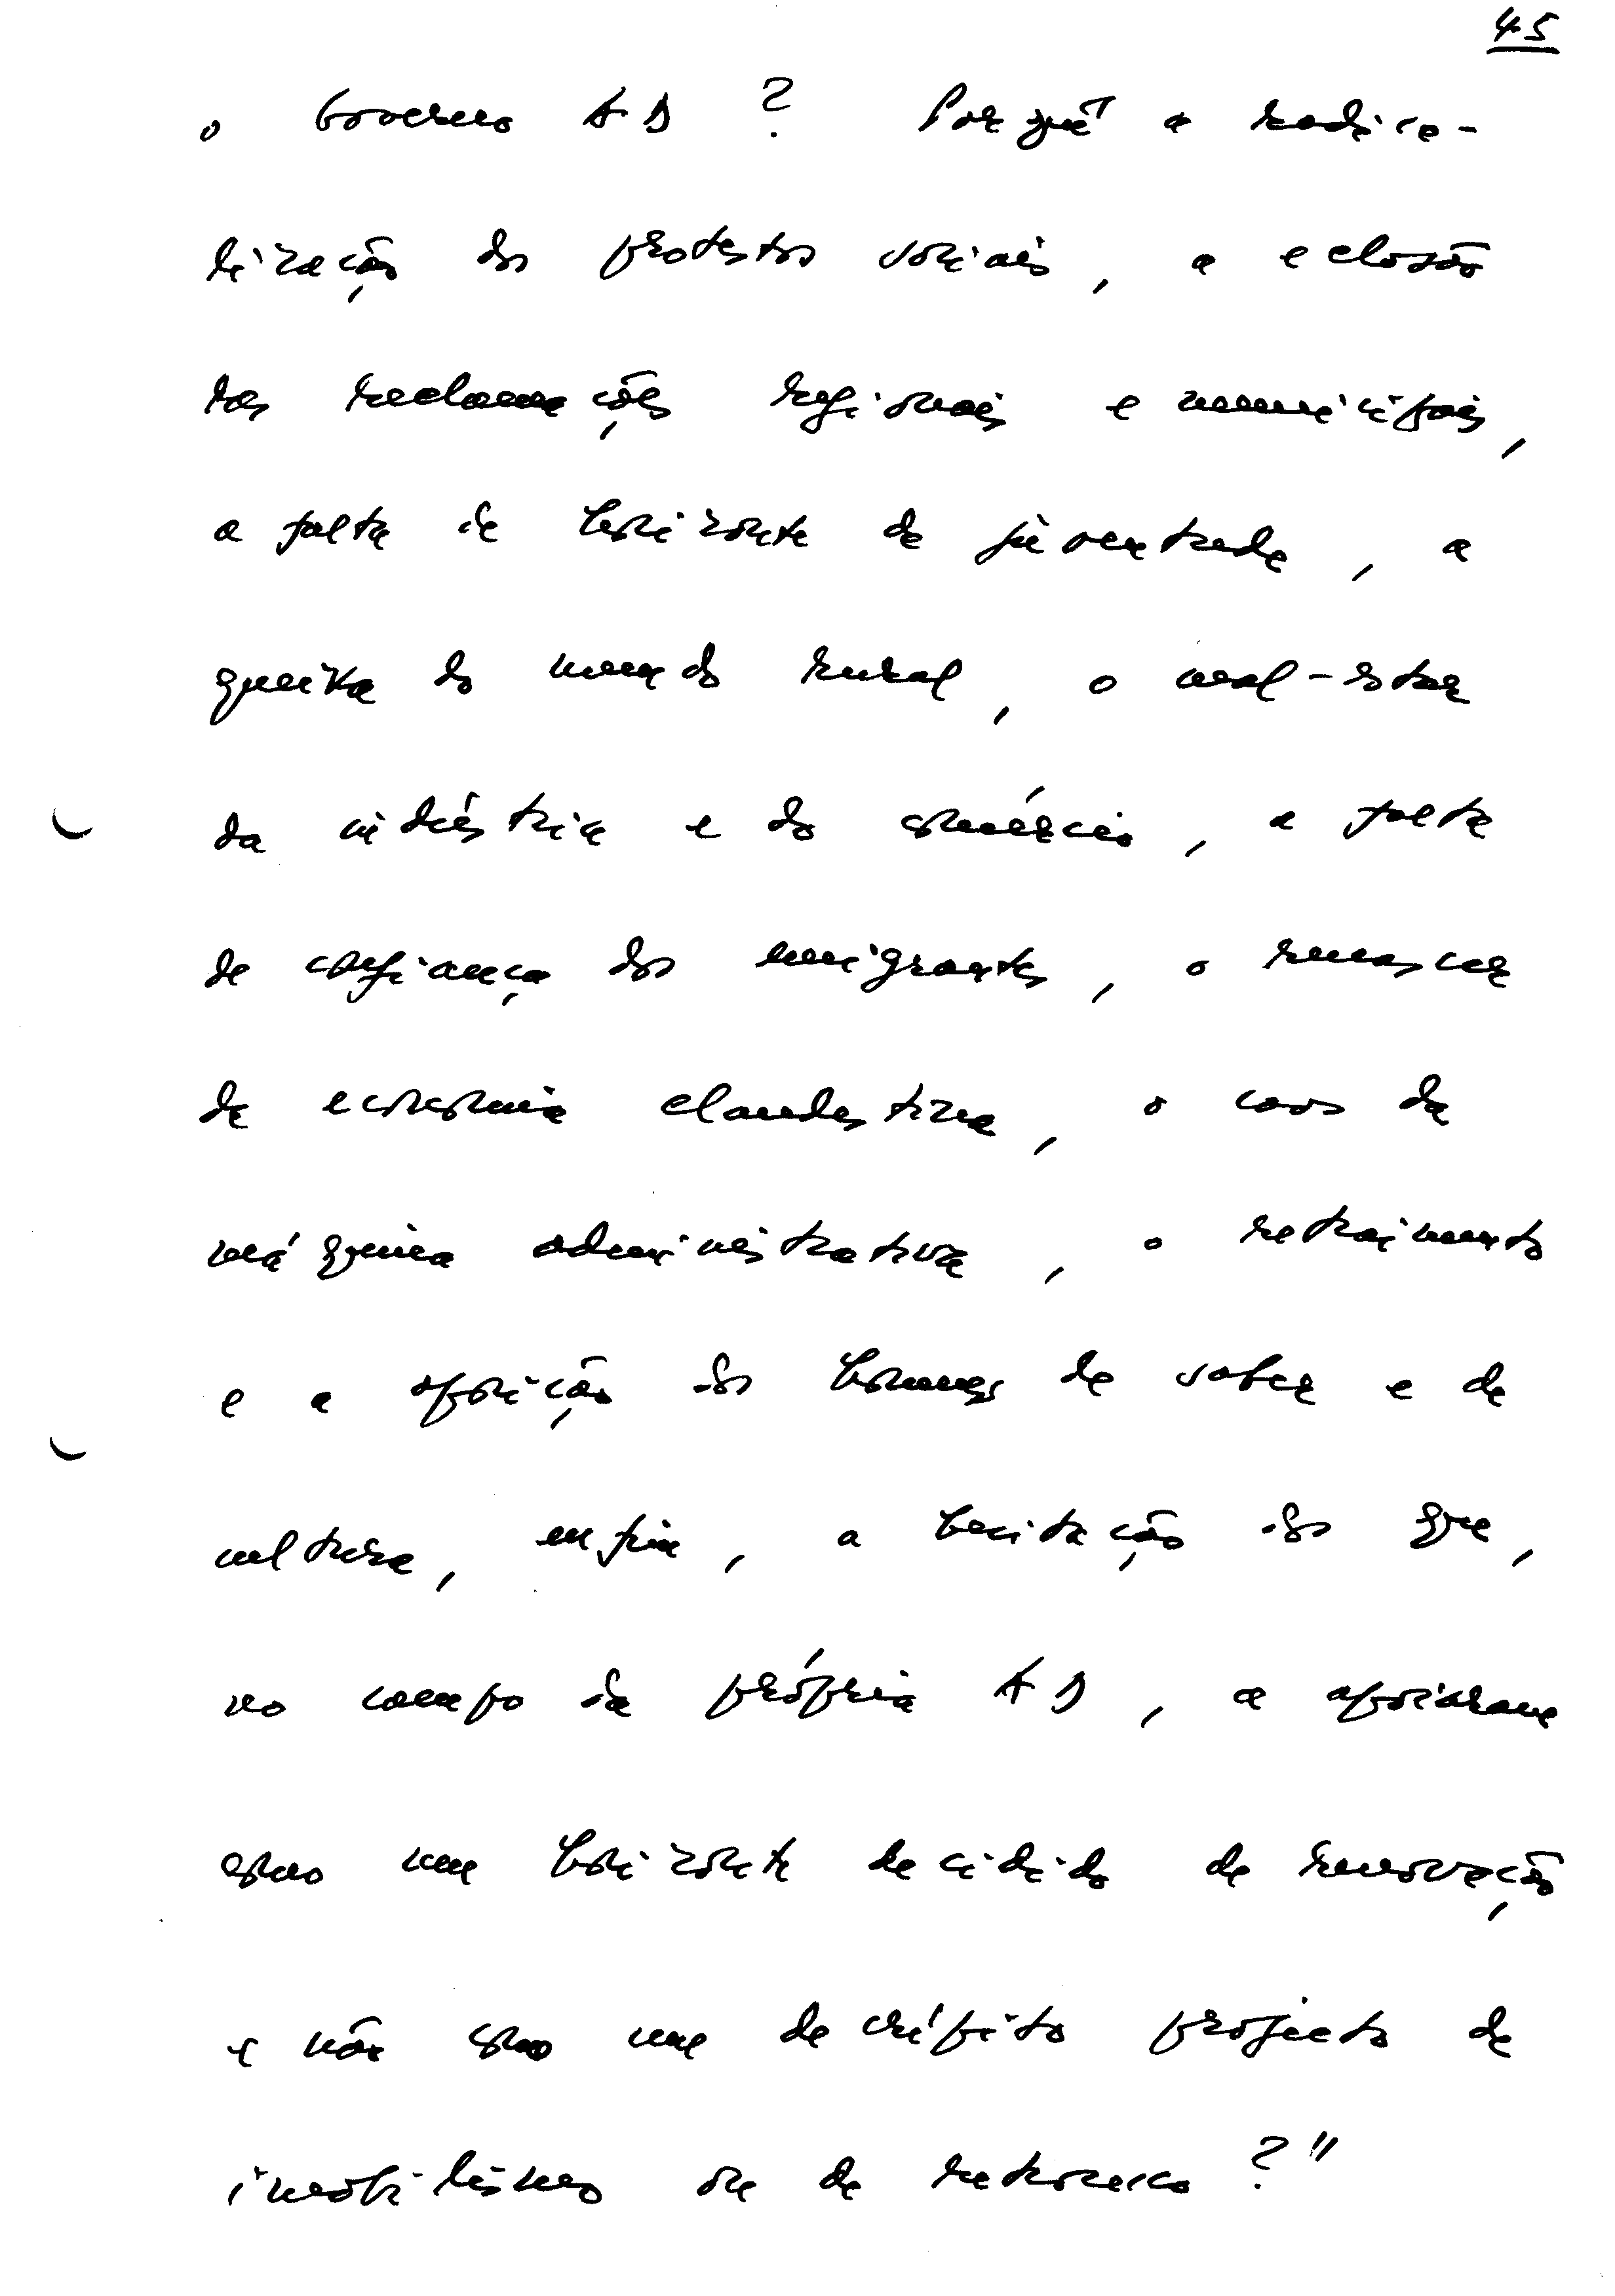 45
o Governo AD ? Porquê a radica-
lização dos protestos sociais, a eclosão
das reclamações regionais e municipais,
a falta de horizonte da juventude, a
queixa do mundo rural, o mal-estar
da indústria e do comércio, a falta
de confiança dos emigrantes, o renascer
da economia clandestina, o caos da
máquina administrativa, o retraimento
e a oposição dos homens de saber e de
cultura, enfim, a hesitação dos que,
no campo da própria AD, a apoiaram
como um horizonte decidido de renovação
e não como um decrépito projecto de
imobilismo ou de retrocesso ?"